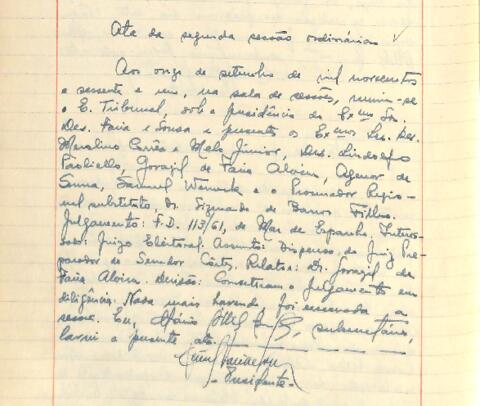 Ata da segunda sessão ordinária
Aos onze de setembro de mil novecentos
e sessenta e um, na sala de sessões, reuniu-se
o E. Tribunal, sob a presidência do Exmo Sr.
Des. Faria e Sousa e presente os Exmos Srs. Des.
Merolino Corrêa e Melo Júnior, Drs. Lindolfo
Paoliello, Gorazil de Faria Alvim, Agenor de
Senna, Samuel Werneck e o Procurador Regio-
nal substituto Dr. Sizenando de Barros Filho.
Julgamento: F.D. 113/61, de Mar de Espanha. Interes-
sado: Juizo Eleitoral. Assunto: Dispensa do Juiz Pre-
parador de Senador Côrtes. Relator: Dr. Gorazil de
Faria Alvim. Decisão: Converteram o julgamento em
diligência. Nada mais havendo foi encerrada a
sessão. Eu, Mário subsecretário,
lavrei a presente ata.
- Presidente -